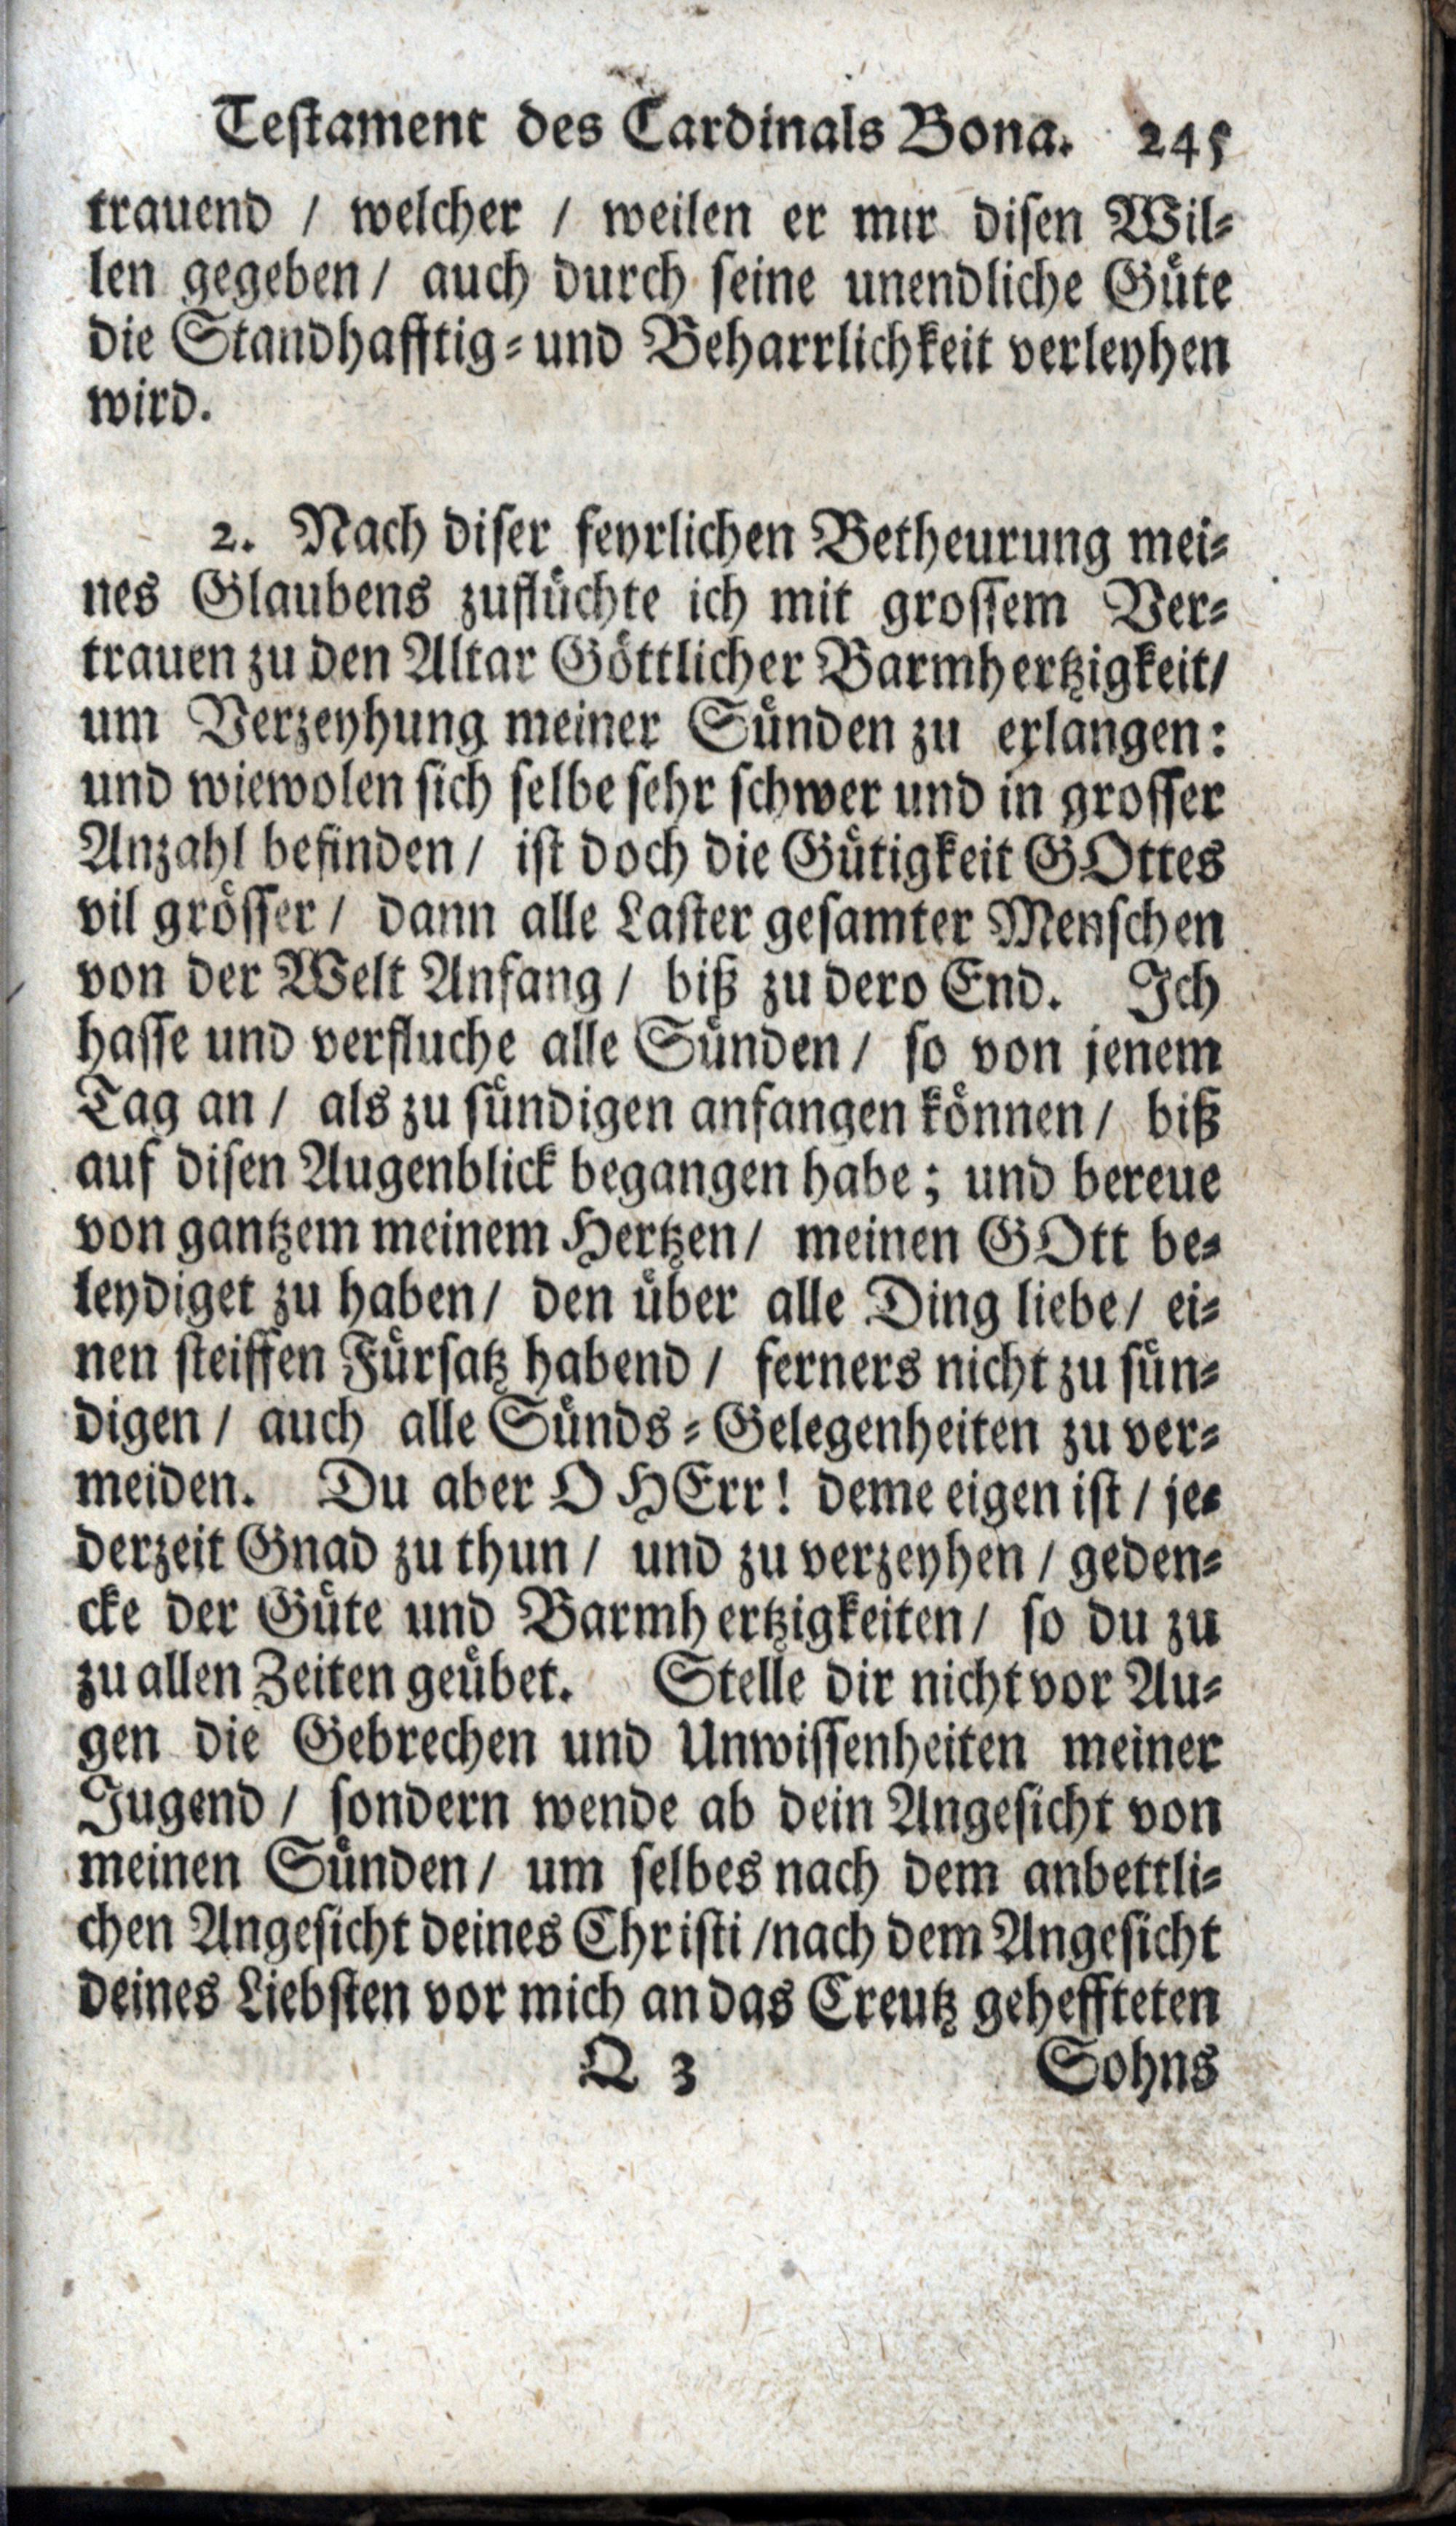 Testament des Cardinals Bona. 245
trauend / welcher / weilen er mir disen Wil-
len gegeben / auch durch seine unendliche Güte
die Standhafftig- und Beharrlichkeit verleyhen
wird.
2. Nach diser feyrlichen Betheurung mei-
nes Glaubens zuflüchte ich mit grossem Ver-
trauen zu den Altar Göttlicher Barmhertzigkeit /
um Verzeyhung meiner Sünden zu erlangen:
und wiewolen sich selbe sehr schwer und in grosser
Anzahl befinden / ist doch die Gütigkeit GOttes
vil grösser / dann alle Laster gesamter Menschen
von der Welt Anfang / biß zu dero End. Ich
hasse und verfluche alle Sünden / so von jenem
Tag an / als zu sündigen anfangen können / biß
auf disen Augenblick begangen habe; und bereue
von gantzem meinem Hertzen / meinen GOtt be-
leydiget zu haben / den über alle Ding liebe / ei-
nen steiffen Fürsatz habend / ferners nicht zu sün-
digen / auch alle Sünds-Gelegenheiten zu ver-
meiden. Du aber O HErr! deme eigen ist / je-
derzeit Gnad zu thun / und zu verzeyhen / geden-
cke der Güte und Barmhertzigkeiten / so du zu
zu allen Zeiten geübet. Stelle dir nicht vor Au-
gen die Gebrechen und Unwissenheiten meiner
Jugend / sondern wende ab dein Angesicht von
meinen Sünden / um selbes nach dem anbettli-
chen Angesicht deines Christi / nach dem Angesicht
deines Liebsten vor mich an das Creutz gehefften
Q 3 Sohns